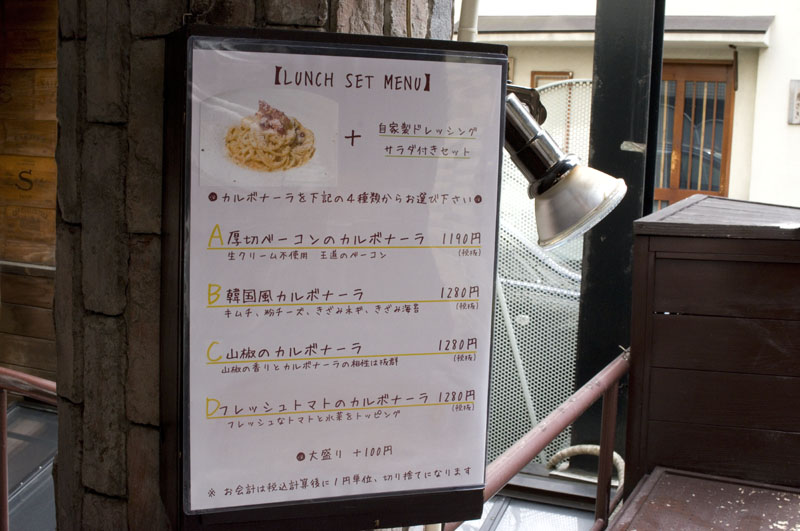 【LUNCH SET MENU】
+
自家製ドレッシング
サラダ付きセット
カルボナーラを下記の4種類からお選び下さい
A 厚切ベーコンのカルボナーラ 1190円
生クリーム不使用 王道のベーコン (税抜)
B 韓国風カルボナーラ 1280円
キムチ、粉チーズ、きざみネギ、きざみ海苔 (税抜)
C 山椒のカルボナーラ 1280円
山椒の香りとカルボナーラの相性は抜群 (税抜)
D フレッシュトマトのカルボナーラ 1280円
フレッシュなトマトと水菜をトッピング (税抜)
大盛り +100円
※ お会計は税込計算後に1円単位、切り捨てになります
S